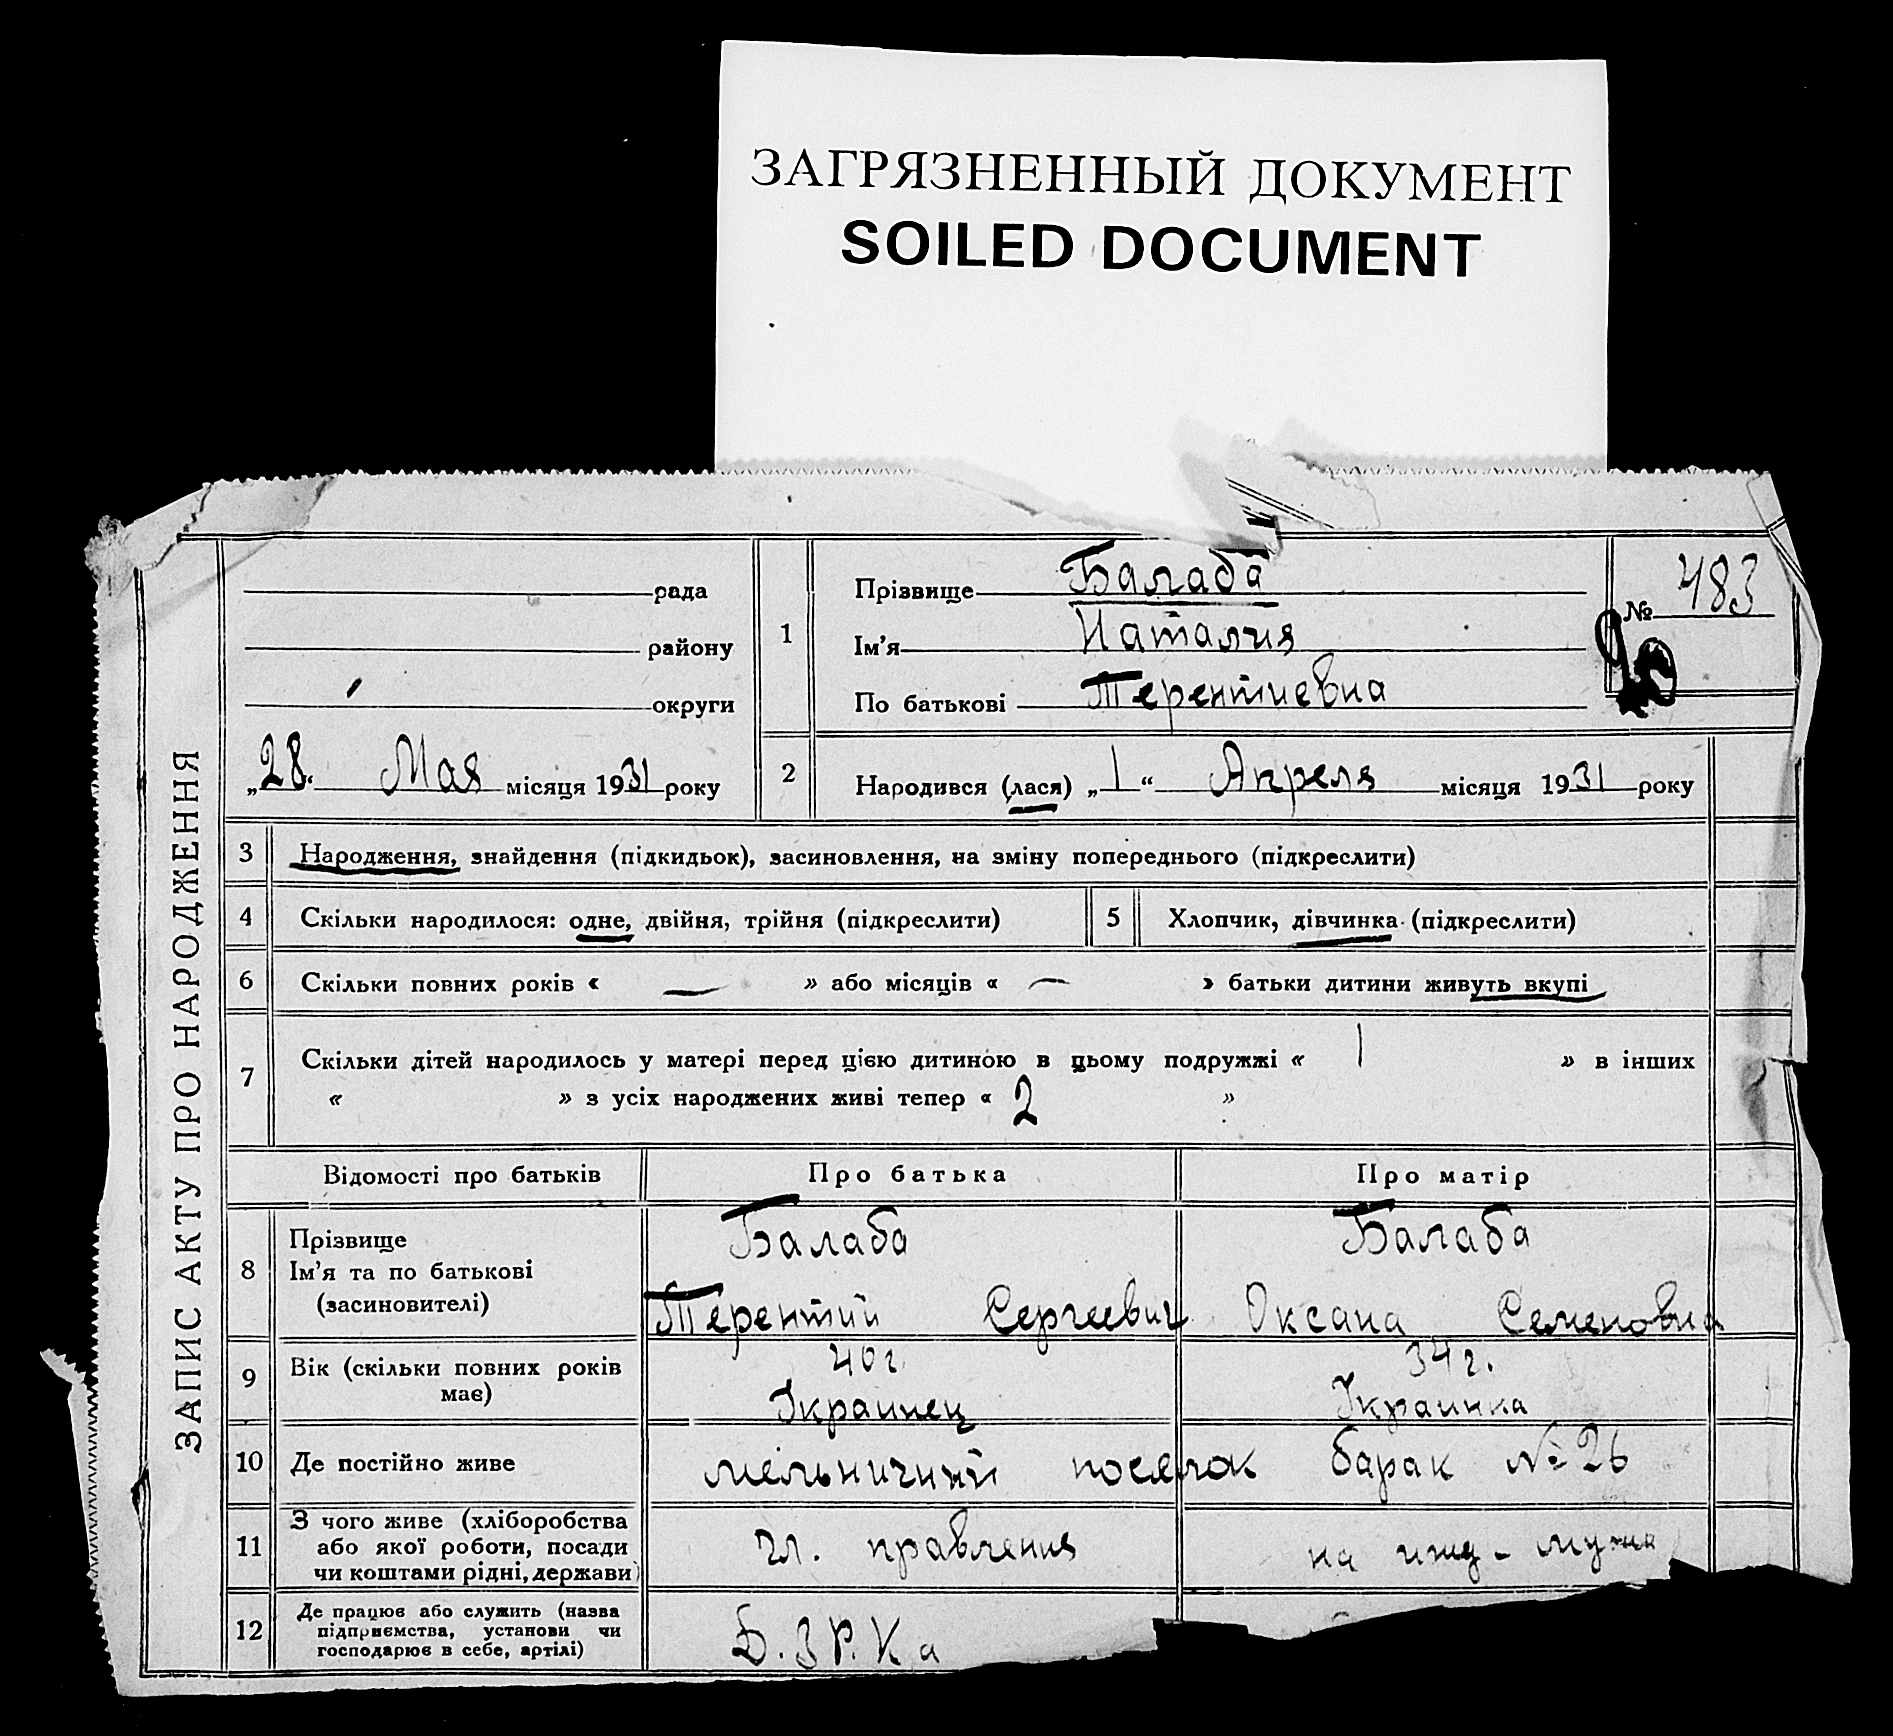 ЗАГРЯЗНЕННЫЙ ДОКУМЕНТ
SOILED DOCUMENT
ЗАПИС АКТУ ПРО НАРОДЖЕННЯ
рада
району
округи
„28“ Мая місяця 1931 року
1
Прізвище Балаба
Ім'я Наталия
По батькові Терентиевна
№ 483
2 Народився (лася) „1“ Апреля місяця 1931 року
3 Народження, знайдення (підкидьок), засиновлення, на зміну попереднього (підкреслити)
4 Скільки народилося: одне, двійня, трійня (підкреслити) 5 Хлопчик, дівчинка (підкреслити)
6 Скільки повних років « — » або місяців « — » батьки дитини живуть вкупі
7 Скільки дітей народилось у матері перед цією дитиною в цьому подружжі « 1 » в інших
« » з усіх народжених живі тепер « 2 »
Відомості про батьків Про батька Про матір
8 Прізвище Балаба Балаба
Ім'я та по батькові
(засиновителі) Терентий Сергеевич Оксана Семеновна
9 Вік (скільки повних років має) 40 г. 34 г.
Украинец Украинка
10 Де постійно живе мельничний поселок барак № 26
11 З чого живе (хліборобства
або якої роботи, посади гл. правления на ижд - мужа
чи коштами рідні, держави)
12 Де працює або служить (назва
підприємства, установи чи Б.З.Р.К а
господарює в себе, артілі)